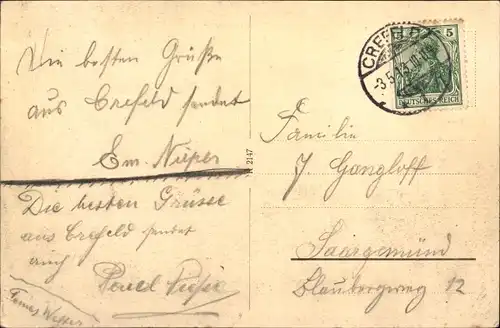 Die besten Grüße
aus Crefeld sendet
Em. Nieper
Die besten Grüsse
aus Crefeld sendet
auch
CREFELD
-3.5.
5
DEUTSCHES REICH
2147
Familie
J. Gangloff
Saargemünd
Blaubergweg 12